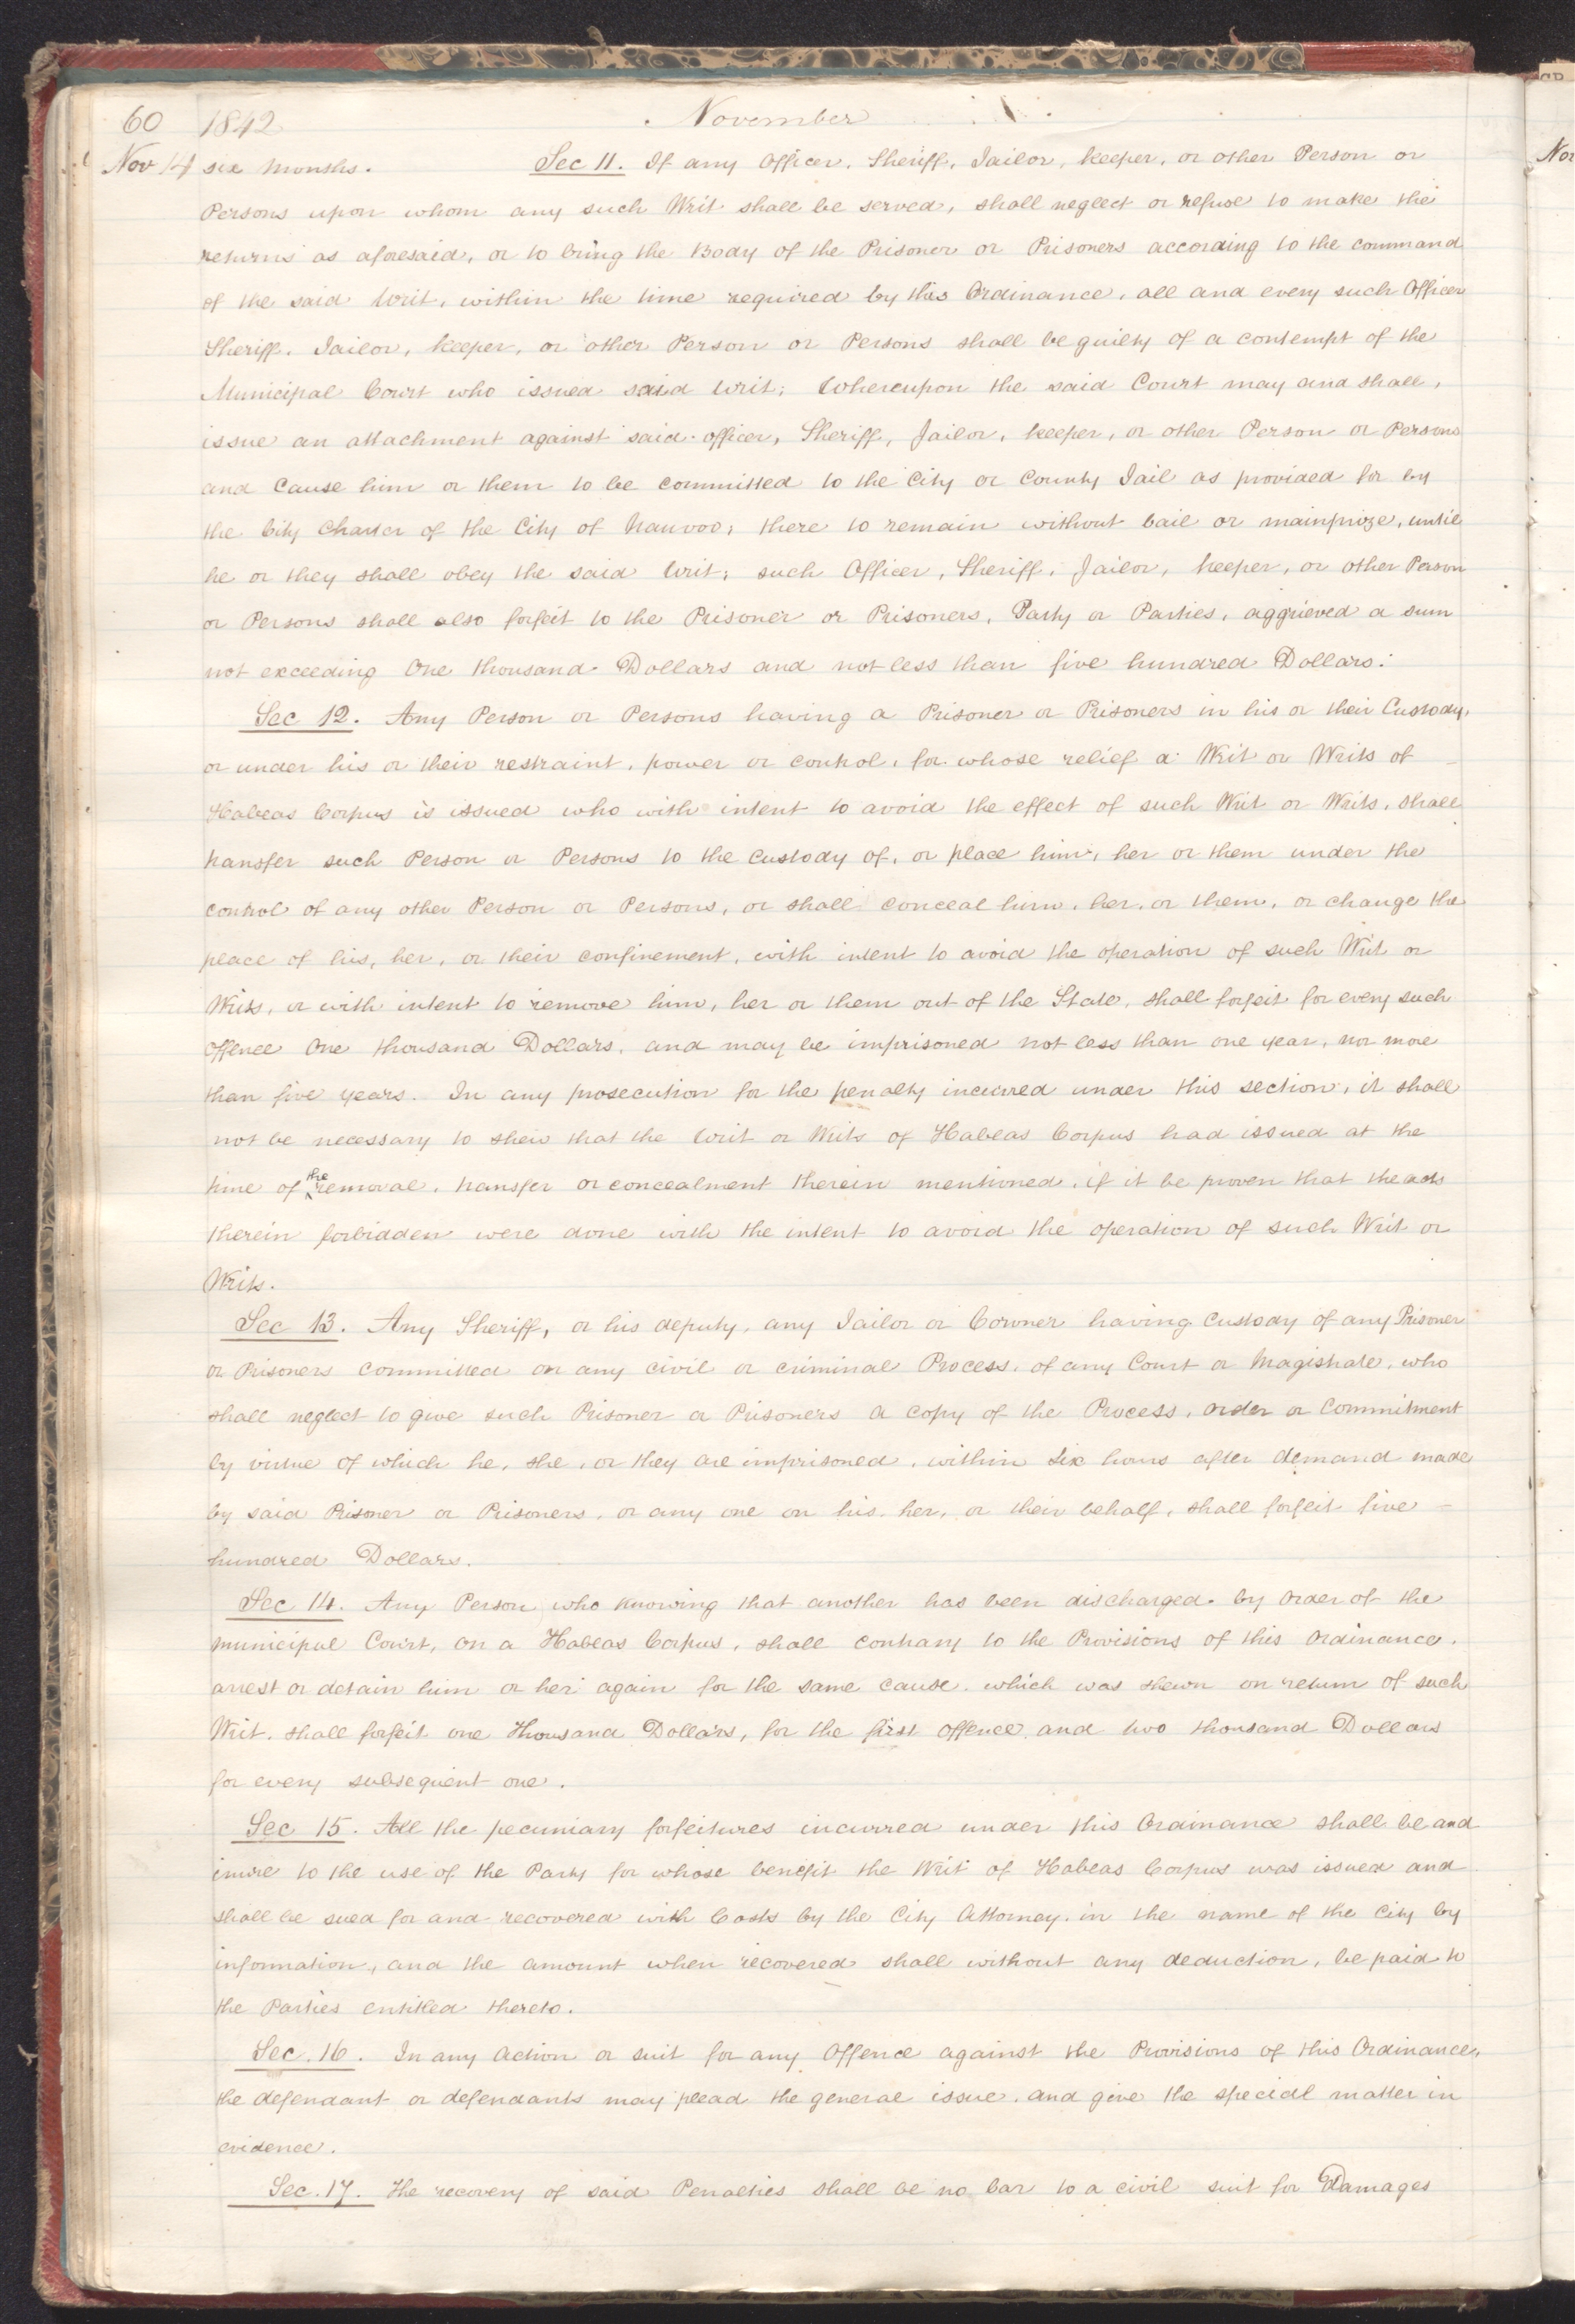 60 1842 November
Nov 14 six months. Sec 11. If any Officer, Sheriff, Jailor, keeper, or other Person or
Persons upon whom any such Writ shall be served, shall neglect or refuse to make the
returns as aforesaid, or to bring the Body of the Prisoner or Prisoners according to the command
of the said Writ, within the time required by this Ordinance, all and every such Officer
Sheriff, Jailor, keeper, or other Person or Persons shall be guilty of a contempt of the
Municipal Court who issued said Writ; Whereupon the said Court may and shall,
issue an attachment against said officer, Sheriff, Jailor, keeper, or other Person or Persons
and cause him or them to be committed to the City or County Jail as provided for by
the City Charter of the City of Nauvoo, there to remain without bail or mainprize, until
he or they shall obey the said Writ; such Officer, Sheriff, Jailor, keeper, or other Person
or Persons shall also forfeit to the Prisoner or Prisoners, Party or Parties, aggrieved a sum
not exceeding One thousand Dollars and not less than five hundred Dollars.
Sec 12. Any Person or Persons having a Prisoner or Prisoners in his or their Custody,
or under his or their restraint, power or control, for whose relief a Writ or Writs of
Habeas Corpus is issued who with intent to avoid the effect of such Writ or Writs, shall
transfer such Person or Persons to the custody of, or place him, her or them under the
control of any other Person or Persons, or shall conceal him, her, or them, or change the
place of his, her, or their confinement, with intent to avoid the operation of such Writ or
Writs, or with intent to remove him, her or them out of the State, shall forfeit for every such
offence One thousand Dollars, and may be imprisoned not less than one year, nor more
than five years. In any prosecution for the penalty incurred under this section, it shall
not be necessary to shew that the Writ or Writs of Habeas Corpus had issued at the
time of the removal, transfer or concealment therein mentioned, if it be proven that the acts
therein forbidden were done with the intent to avoid the operation of such Writ or
Writs.
Sec 13. Any Sheriff, or his deputy, any Jailor or Coroner having custody of any Prisoner
or Prisoners committed on any civil or criminal Process, of any Court or Magistrate, who
shall neglect to give such Prisoner or Prisoners a copy of the Process, order or Commitment
by virtue of which he, she, or they are imprisoned, within six hours after demand made
by said Prisoner or Prisoners, or any one on his, her, or their behalf, shall forfeit five
hundred Dollars.
Sec 14. Any Person who knowing that another has been discharged by order of the
municipal Court, on a Habeas Corpus, shall contrary to the Provisions of this Ordinance,
arrest or detain him or her again for the same cause which was shewn on return of such
Writ, shall forfeit one Thousand Dollars, for the first offence, and two thousand Dollars
for every subsequent one.
Sec 15. All the pecuniary forfeitures incurred under this Ordinance shall be and
inure to the use of the Party for whose benefit the Writ of Habeas Corpus was issued and
shall be sued for and recovered with Costs by the City Attorney, in the name of the City by
information, and the amount when recovered shall without any deduction, be paid to
the Parties entitled thereto.
Sec. 16. In any action or suit for any Offence against the Provisions of this Ordinance,
the defendant or defendants may plead the general issue, and give the special matter in
evidence.
Sec. 17. The recovery of said Penalties shall be no bar to a civil suit for Damages